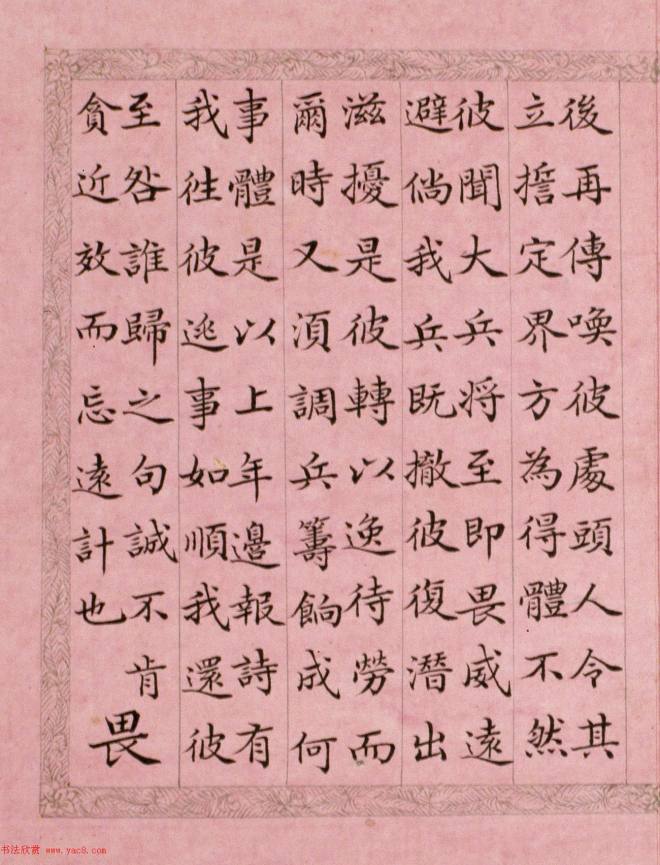 後再傳喚彼處頭人令其
立誓定界方為得體不然
彼聞大兵將至即畏威遠
避倘我兵既撤彼復潛出
滋擾是彼轉以逸待勞而
爾時又須調兵籌餉成何
事體是以上年邊報詩有
我往彼逃事如順我還彼
至咎誰歸之句誠不肯
貪近效而忘遠計也
畏
书法欣赏 www.yac8.com